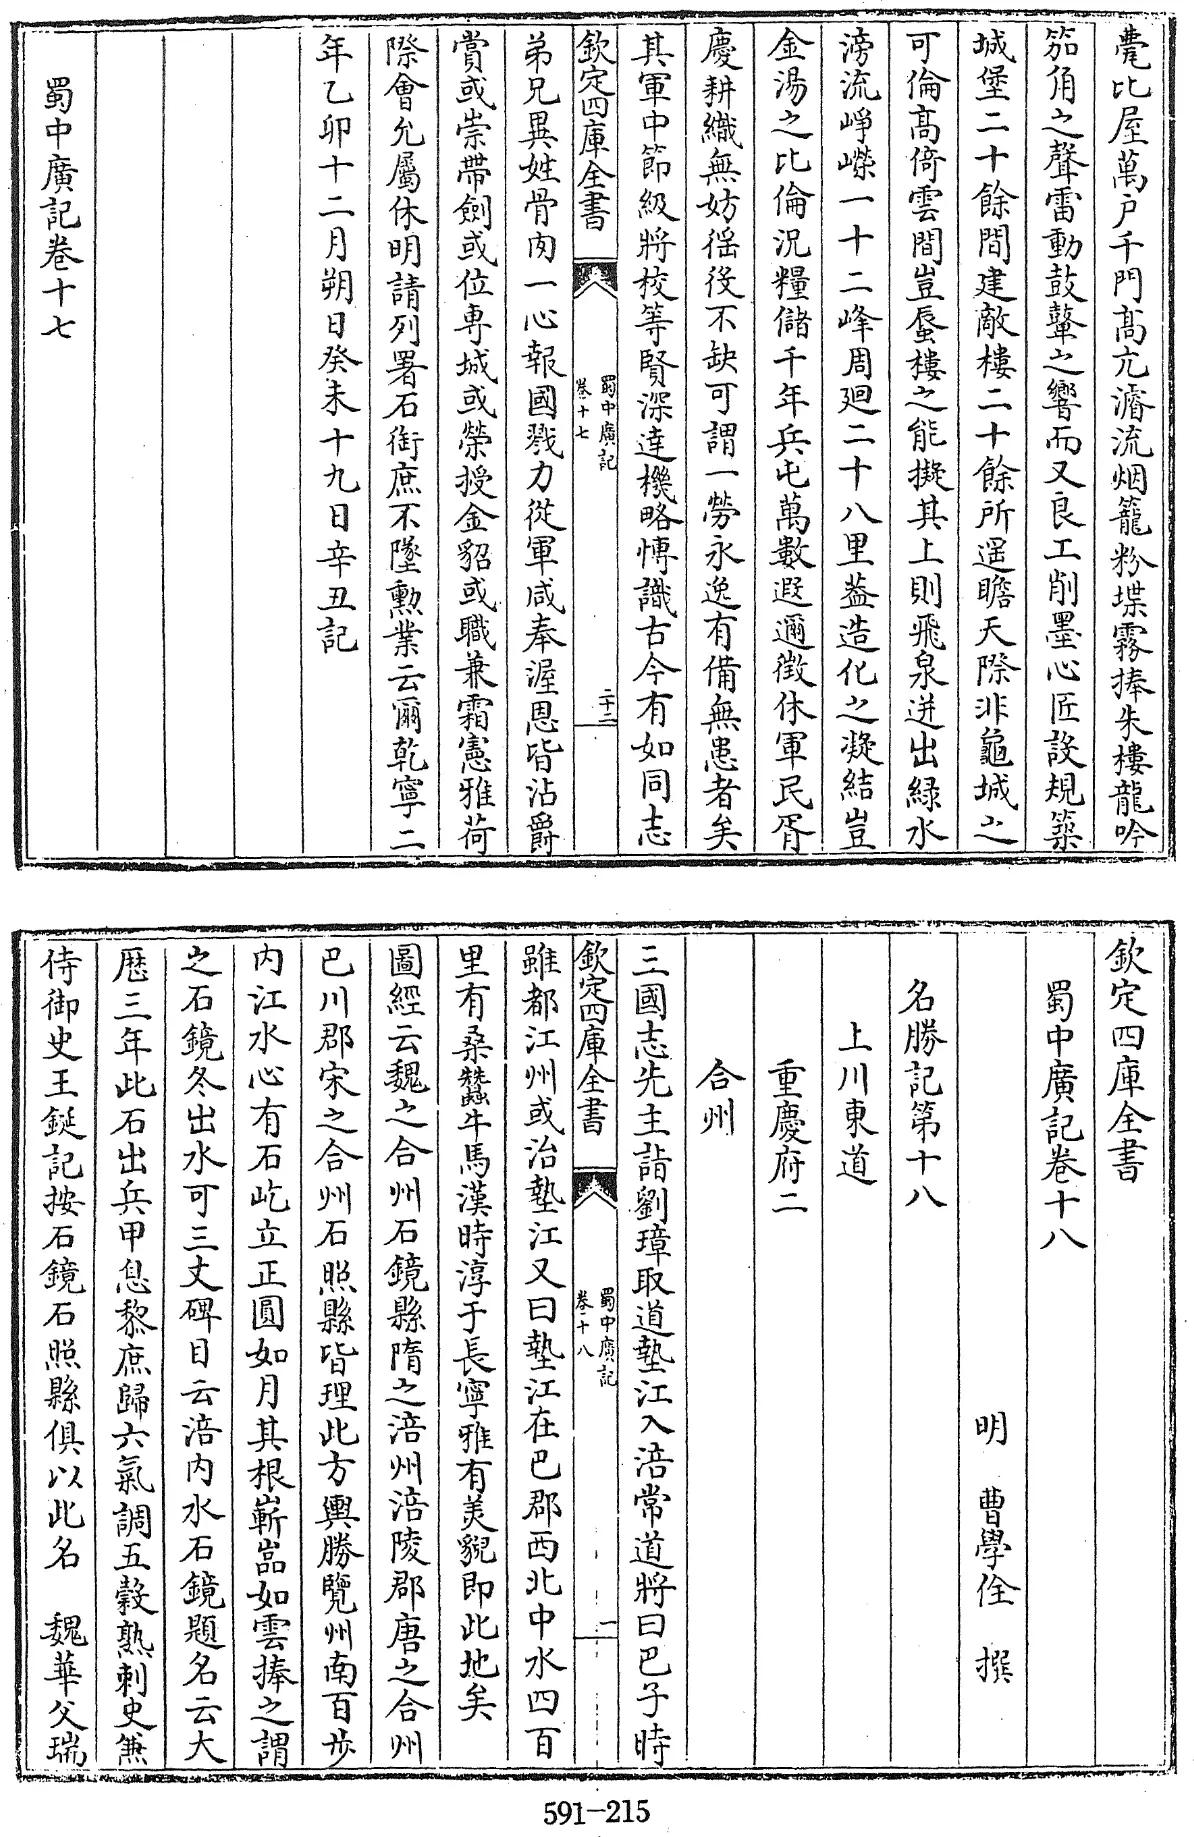 甍比屋萬戶千門髙亢濬流烟籠粉堞霧捧朱樓龍吟
笳角之聲雷動鼓鼙之響而又良工削墨心匠設規築
城堡二十餘間建敵樓二十餘所遥瞻天際非龜城之
可倫髙倚雲間豈蜃樓之能擬其上則飛泉迸出緑水
滂流崢嶸一十二峰周廻二十八里葢造化之凝結豈
金湯之比倫況糧儲千年兵屯萬數遐邇徴休軍民胥
慶耕織無妨徭役不缺可謂一勞永逸有備無患者矣
其軍中節級將校等賢深達機略愽識古今有如同志
欽定四庫全書
蜀中廣記
卷十七
二十二
弟兄異姓骨肉一心報國戮力從軍咸奉渥恩皆沾爵
賞或崇帶劍或位専城或榮授金貂或職兼霜憲雅荷
際會允屬休明請列署石銜庶不墜勲業云爾乾寧二
年乙卯十二月朔日癸未十九日辛丑記
蜀中廣記卷十七
欽定四庫全書
蜀中廣記卷十八
明 曹學佺 撰
名勝記第十八
上川東道
重慶府二
合州
三國志先主詣劉璋取道墊江入涪常道將曰巴子時
欽定四庫全書
蜀中廣記
卷十八
一
雖都江州或治墊江又曰墊江在巴郡西北中水四百
里有桑蠶牛馬漢時淳于長寧雅有美貌即此地矣
圖經云魏之合州石鏡縣隋之涪州涪陵郡唐之合州
巴川郡宋之合州石照縣皆理此方輿勝覽州南百步
内江水心有石屹立正圓如月其根嶄嵓如雲捧之謂
之石鏡冬出水可三丈碑目云涪内水石鏡題名云大
厯三年此石出兵甲息黎庶歸六氣調五榖熟刺史兼
侍御史王鋋記按石鏡石照縣俱以此名 魏華父瑞
591-215